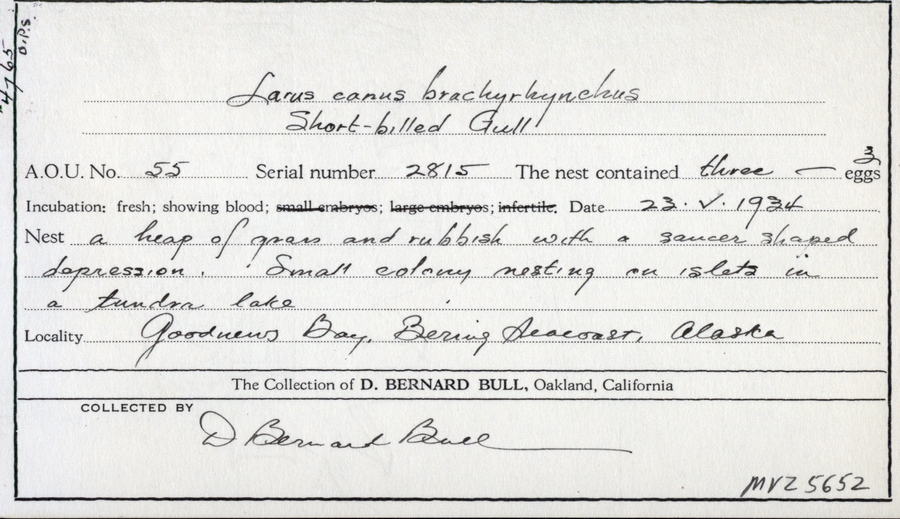 4765
O.P.S.
Larus canus brachyrhynchus
Short-billed Gull
A.O.U. No. 55 Serial number 2815 The nest contained three — 3 eggs
Incubation: fresh; showing blood; small embryos; large embryos; infertile. Date 23. V. 1934
Nest a heap of grass and rubbish with a saucer shaped
depression. Small colony nesting on islets in
a tundra lake
Locality Goodnews Bay, Bering Seacoast, Alaska
The Collection of D. BERNARD BULL, Oakland, California
COLLECTED BY
D Bernard Bull
MVZ 5652